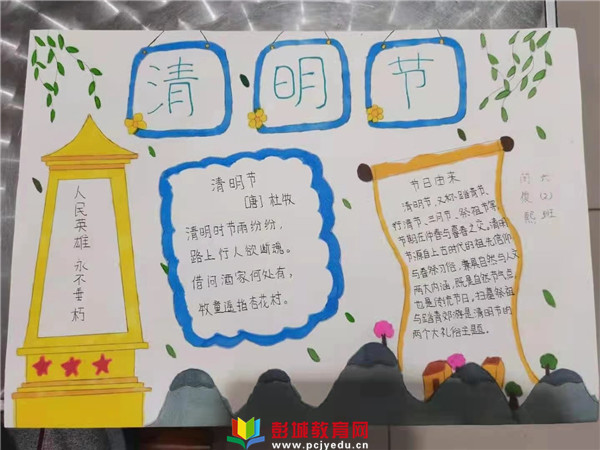 清明节
人民英雄 永不垂朽
清明节
[唐] 杜牧
清明时节雨纷纷,
路上行人欲断魂。
借问酒家何处有,
牧童遥指杏花村。
节日由来
清明节,又称踏青节、
行清节、三月节、祭祖节等,
节期在仲春与暮春之交。清明
节源自上古时代的祖先信仰
与春祭习俗,兼具自然与人文
两大内涵,既是自然节气点,
也是传统节日,扫墓祭祖
与踏青郊游是清明节的
两个大礼俗主题。
六(2)班
闫俊
彭城教育网
www.pcjyedu.cn